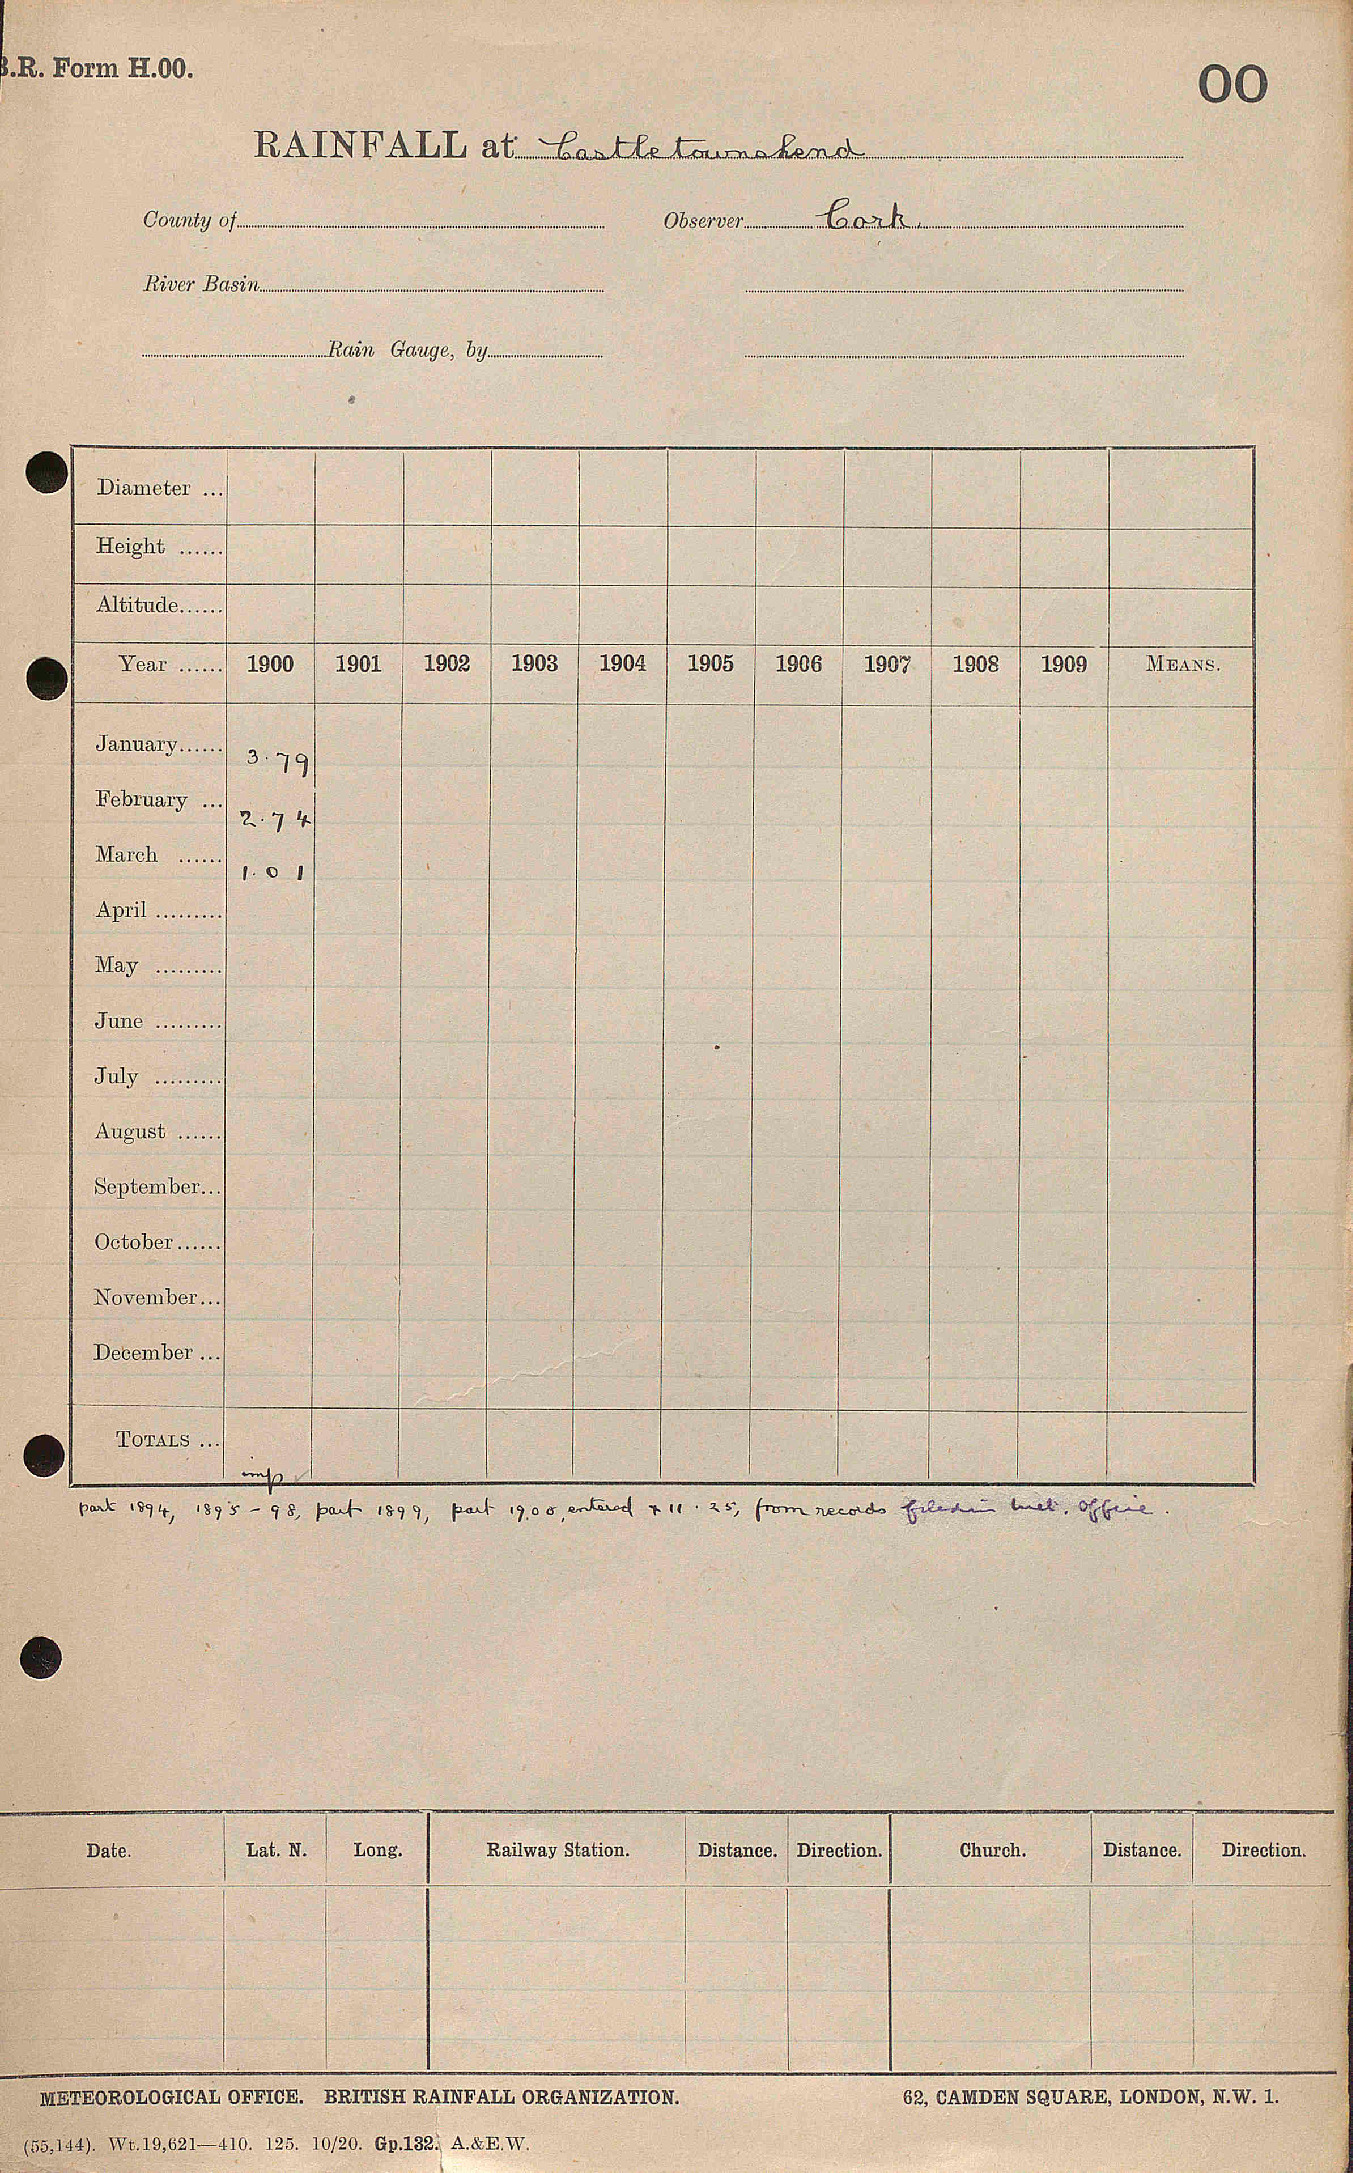 B.R. Form H.00.
00
RAINFALL at Castletownshend
County of Observer Cork.
River Basin
Rain Gauge, by
Diameter ...
Height ......
Altitude......
Year ...... 1900 1901 1902 1903 1904 1905 1906 1907 1908 1909 MEANS.
January...... 3.79
February ... 2.74
March ...... 1.01
April .........
May .........
June .........
July .........
August ......
September...
October......
November...
December ...
TOTALS ... imp
part 1894, 1895-98, part 1899, part 1900, entered 11.25, from records filed in Met. Office.
Date. Lat. N. Long. Railway Station. Distance. Direction. Church. Distance. Direction.
METEOROLOGICAL OFFICE. BRITISH RAINFALL ORGANIZATION. 62, CAMDEN SQUARE, LONDON, N.W. 1.
(55,144). Wt.19,621—410. 125. 10/20. Gp.132. A.&E.W.